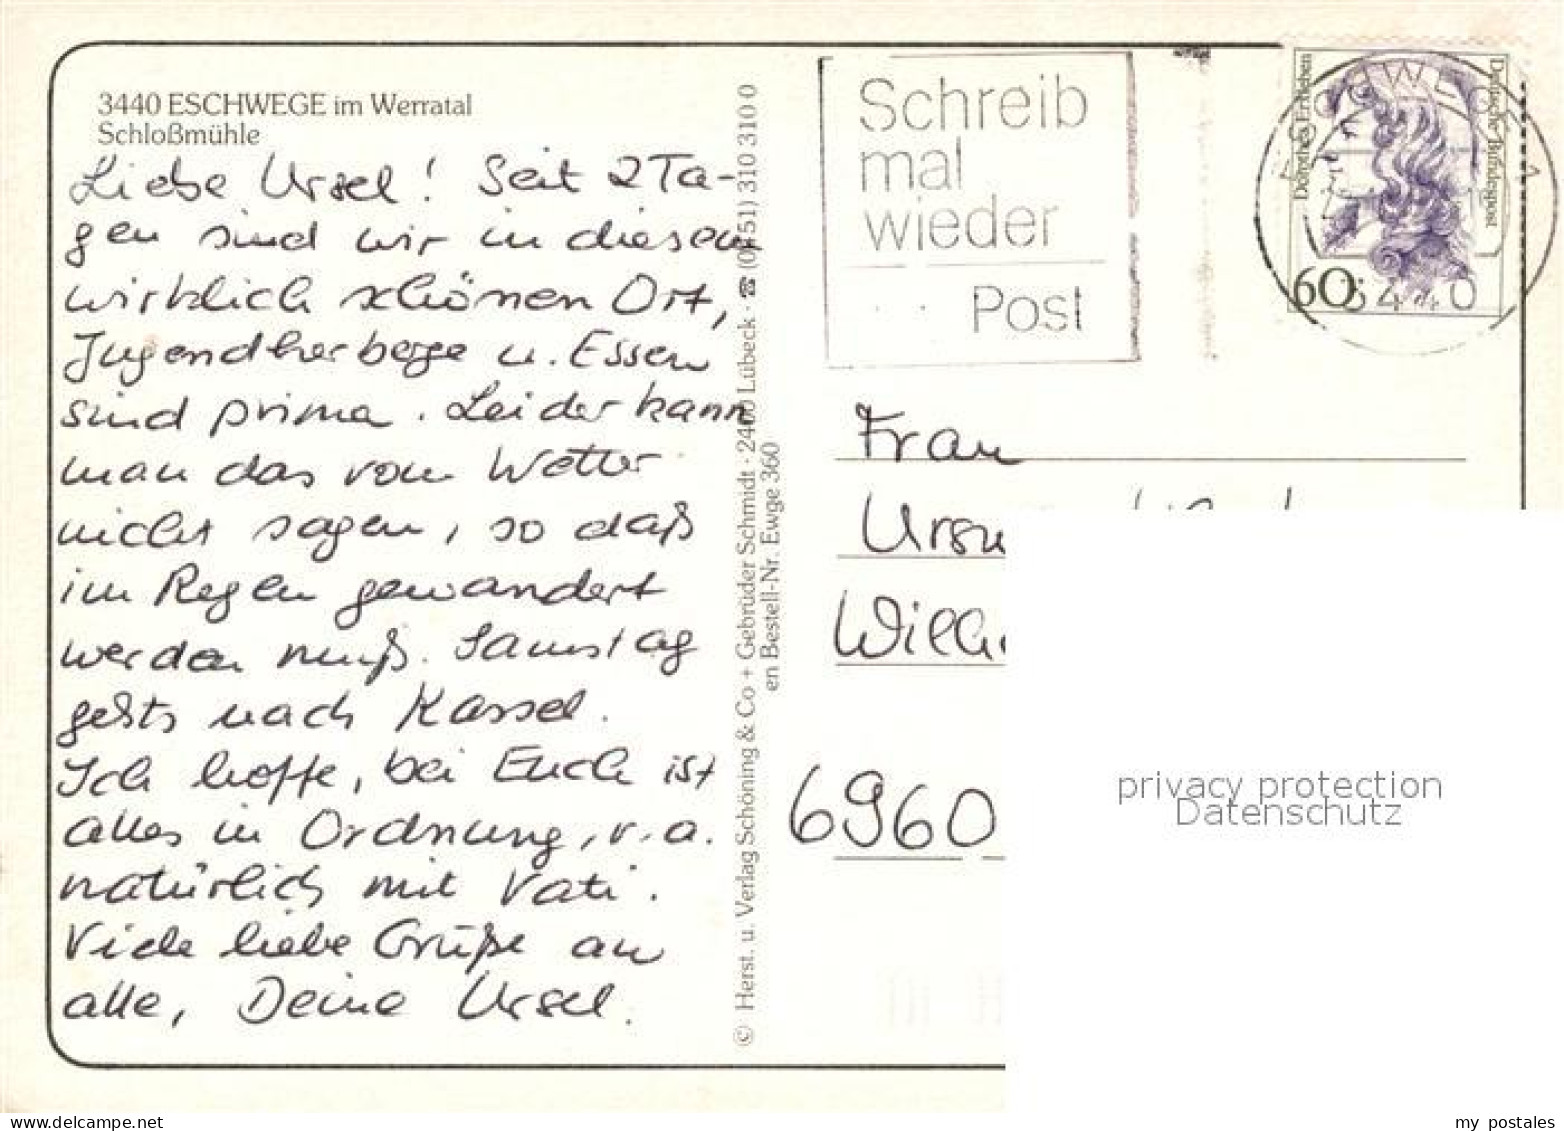 3440 ESCHWEGE im Werratal
Schloßmühle
Liebe Ursel! Seit 2 Ta-
gen sind wir in diesem
wirklich schönen Ort,
Jugendherberge u. Essen
sind prima. Leider kann
man das vom Wetter
nicht sagen, so daß
im Regen gewandert
werden muß. Samstag
gehts nach Kassel.
Ich hoffe, bei Euch ist
alles in Ordnung, v. a.
natürlich mit Vati.
Viele liebe Grüße an
alle, Deine Ursel.
© Herst. u. Verlag Schöning & Co + Gebrüder Schmidt · 2400 Lübeck · ☎ (04 51) 310 310 0
en Bestell-Nr. Ewge 360
Schreib
mal
wieder
Post
Dorothea Erxleben
Deutsche Bundespost
60
ESCHWEGE
3440
Frau
6960
privacy protection
Datenschutz
my postales